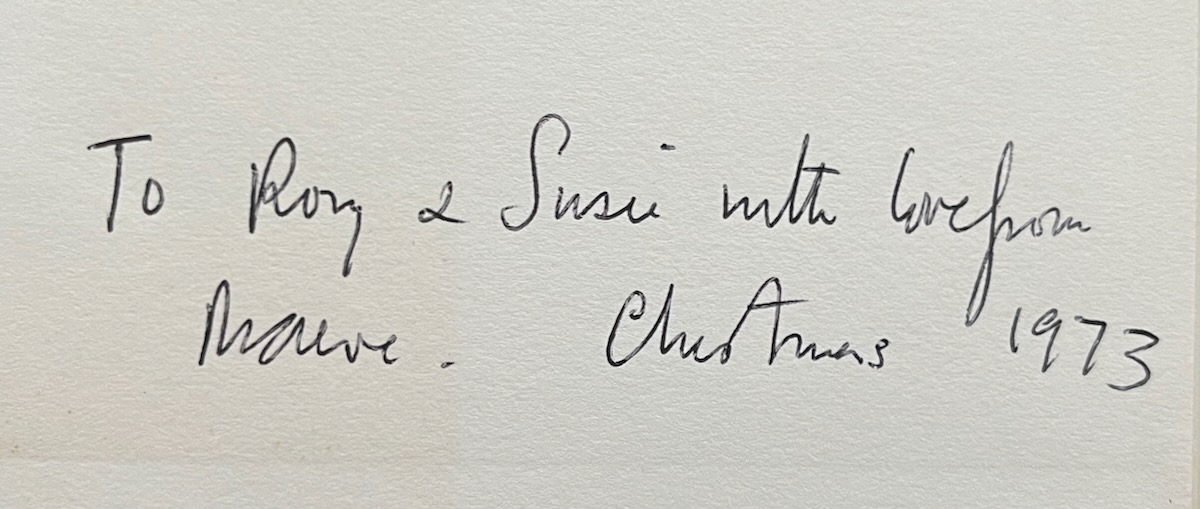 To Rory & Susie with love from
Maeve. Christmas 1973